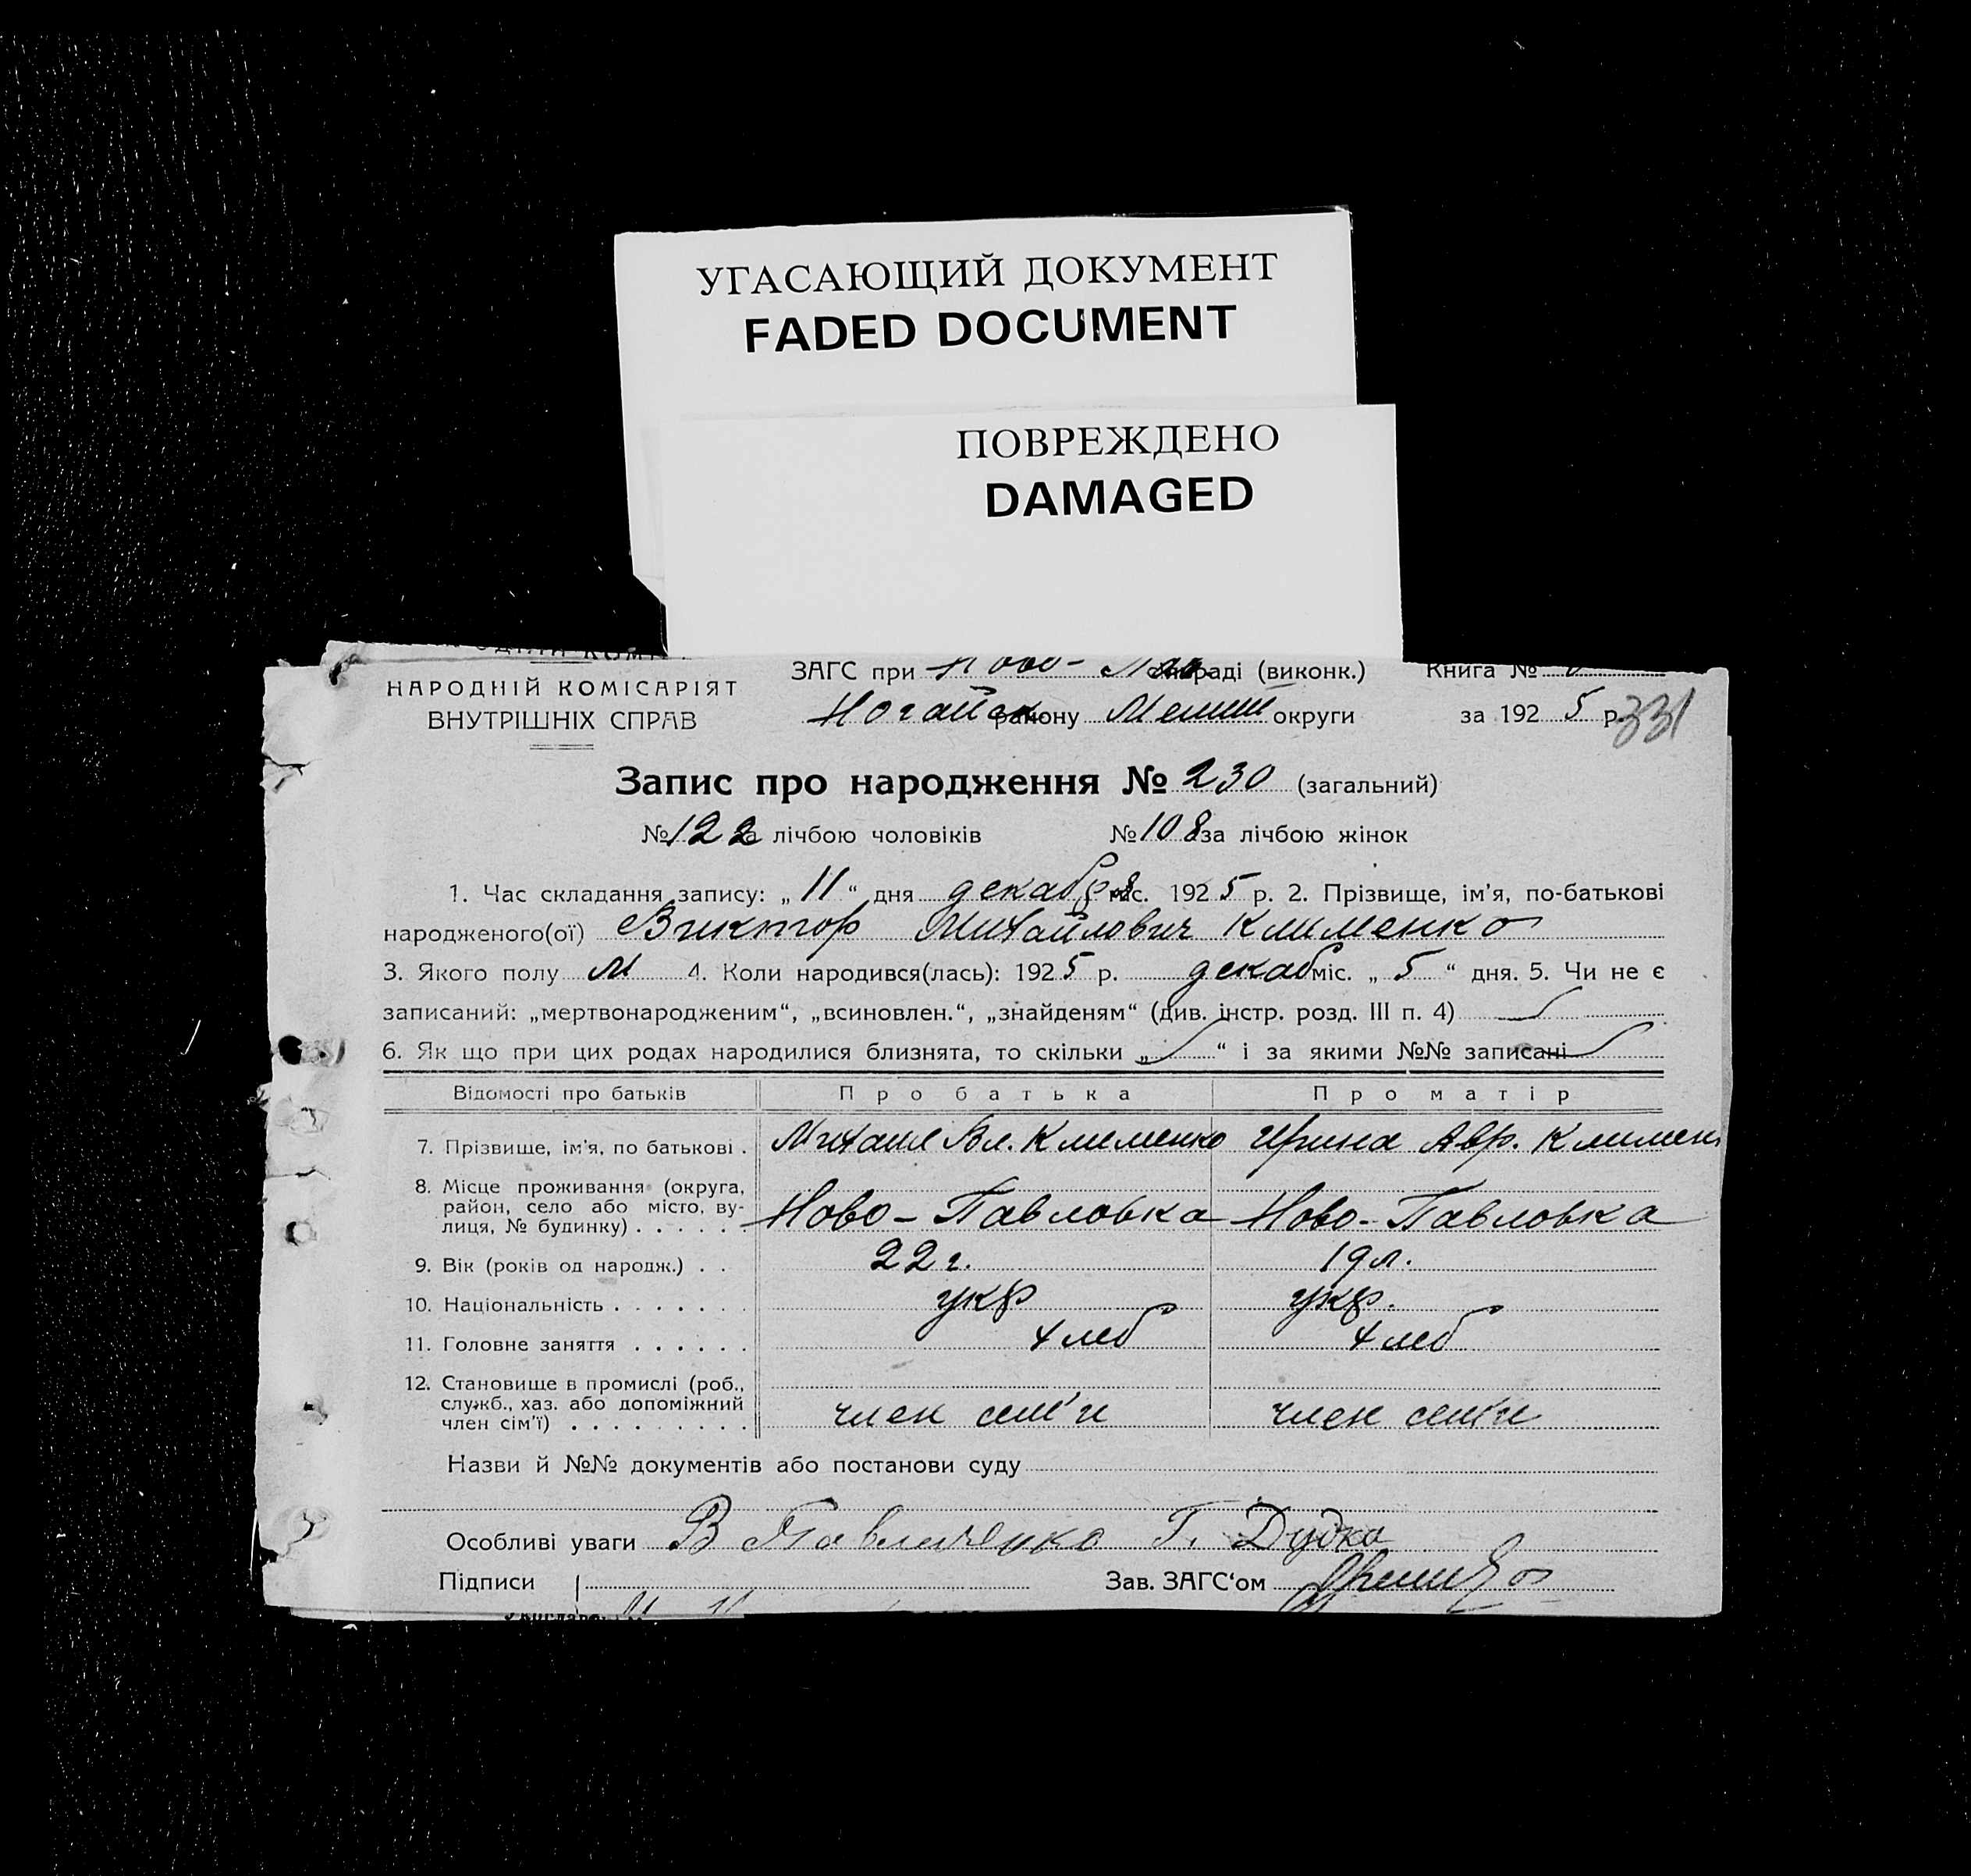 УГАСАЮЩИЙ ДОКУМЕНТ
FADED DOCUMENT
ПОВРЕЖДЕНО
DAMAGED
НАРОДНІЙ КОМІСАРІЯТ
ВНУТРІШНІХ СПРАВ
ЗАГС при Ново-Пав. сільраді (виконк.) Книга №
Ногайск району Мелит округи за 1925 р. 331
Запис про народження № 230 (загальний)
№ 122 за лічбою чоловіків № 108 за лічбою жінок
1. Час складання запису: „11“ дня декабря міс. 1925 р. 2. Прізвище, ім'я, по-батькові
народженого(ої) Виктор Михайлович Клименко
3. Якого полу М 4. Коли народився(лась): 1925 р. декаб міс. „5“ дня. 5. Чи не є
записаний: „мертвонародженим“, „всиновлен.“, „знайденям“ (див. інстр. розд. III п. 4)
6. Як що при цих родах народилися близнята, то скільки „ “ і за якими №№ записані
Відомості про батьків Про батька Про матір
7. Прізвище, ім'я, по батькові . Михаил Вл. Клименко Ирина Авр. Климен
8. Місце проживання (округа,
район, село або місто, ву-
лиця, № будинку) . . . . . . Ново-Павловка Ново-Павловка
9. Вік (років од народж.) . . 22 г. 19 л.
10. Національність . . . . . . . укр укр.
11. Головне заняття . . . . . . хлеб хлеб
12. Становище в промислі (роб.,
служб., хаз. або допоміжний
член сім'ї) . . . . . . . . . член сем'и член сем'и
Назви й №№ документів або постанови суду
Особливі уваги В Павличенко Г. Дудка
Підписи Зав. ЗАГС'ом